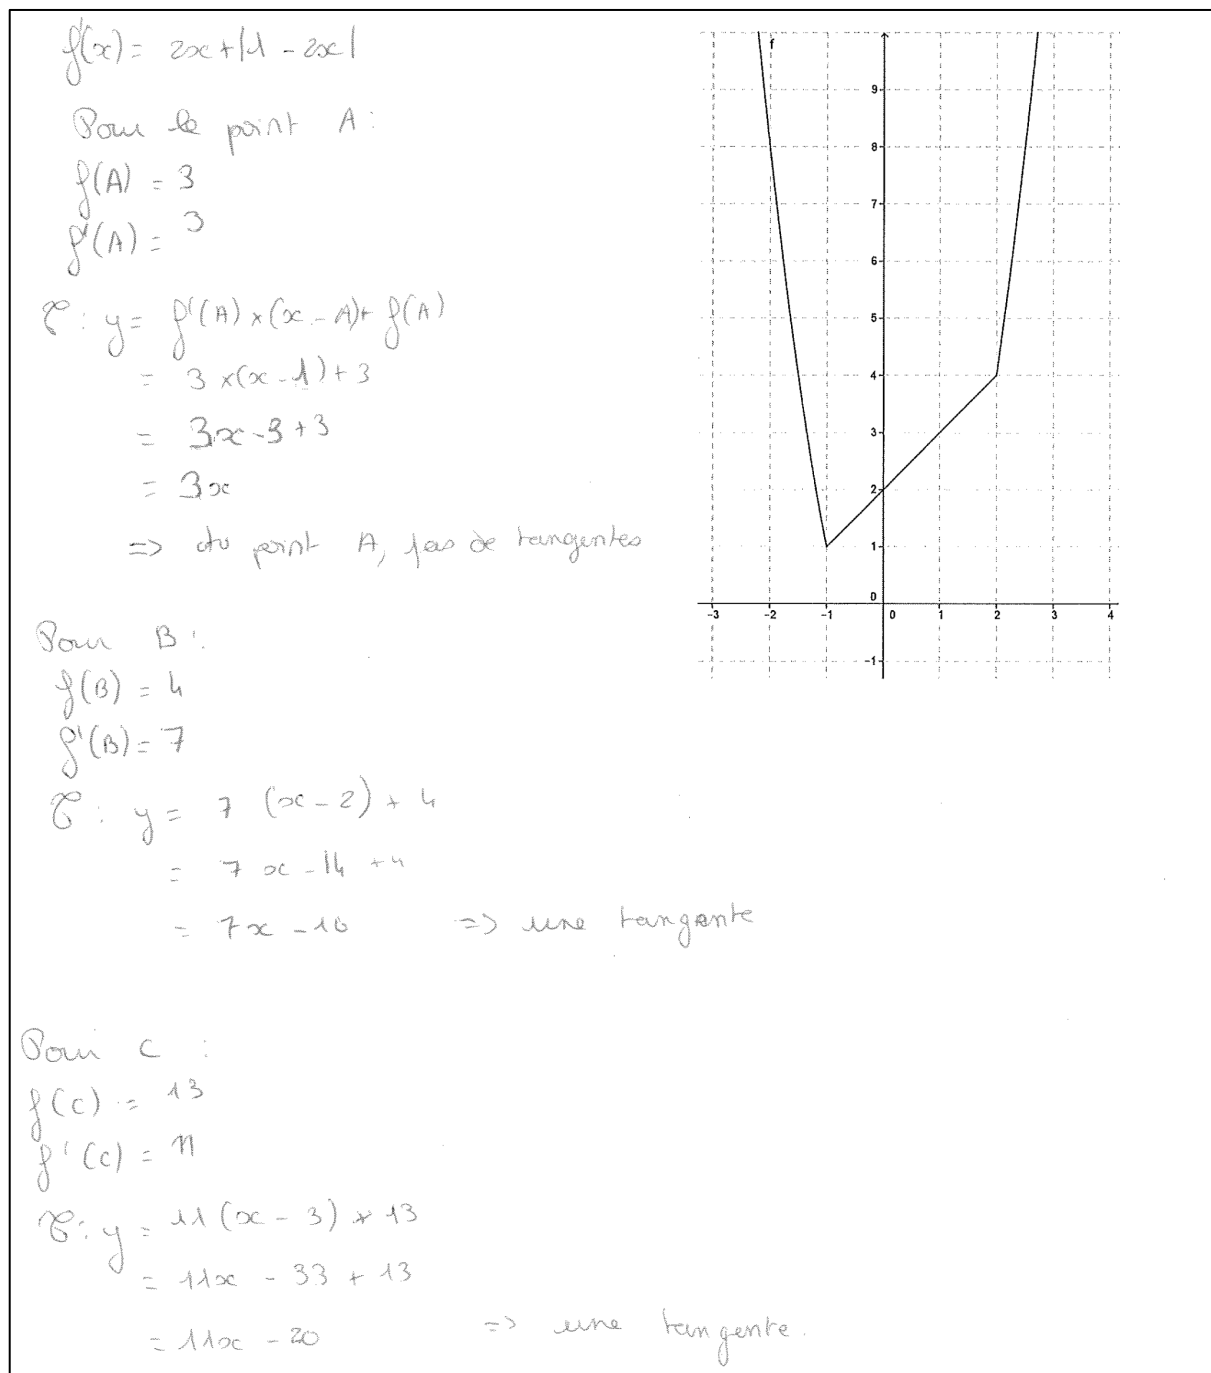 f'(x) = 2x + |1 - 2x|
Pour le point A :
f(A) = 3
f'(A) = 3
C : y = f'(A) × (x - A) + f(A)
= 3 × (x - 1) + 3
= 3x - 3 + 3
= 3x
=> au point A, pas de tangentes
Pour B :
f(B) = 4
f'(B) = 7
C : y = 7 (x - 2) + 4
= 7x - 14 + 4
= 7x - 10 => une tangente
Pour C :
f(C) = 13
f'(C) = 11
C : y = 11 (x - 3) + 13
= 11x - 33 + 13
= 11x - 20 => une tangente.
f
9
8
7
6
5
4
3
2
1
0
-3 -2 -1 0 1 2 3 4
-1